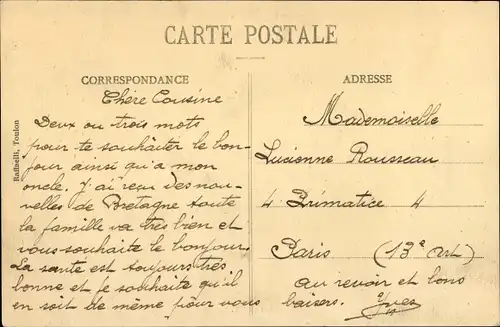 CARTE POSTALE
CORRESPONDANCE
Chère Cousine
Deux ou trois mots
pour te souhaiter le bon-
jour ainsi qu'a mon
oncle. J'ai reçu des nou-
velles de Bretagne toute
la famille va très bien et
vous souhaite le bonjour
La santé est toujours très
bonne et je souhaite qu'il
en soit de même pour vous
ADRESSE
Mademoiselle
Lucienne Rousseau
4 Primatice 4
Paris (13e Art)
au revoir et bons
baisers. Yves
Raffaelli, Toulon